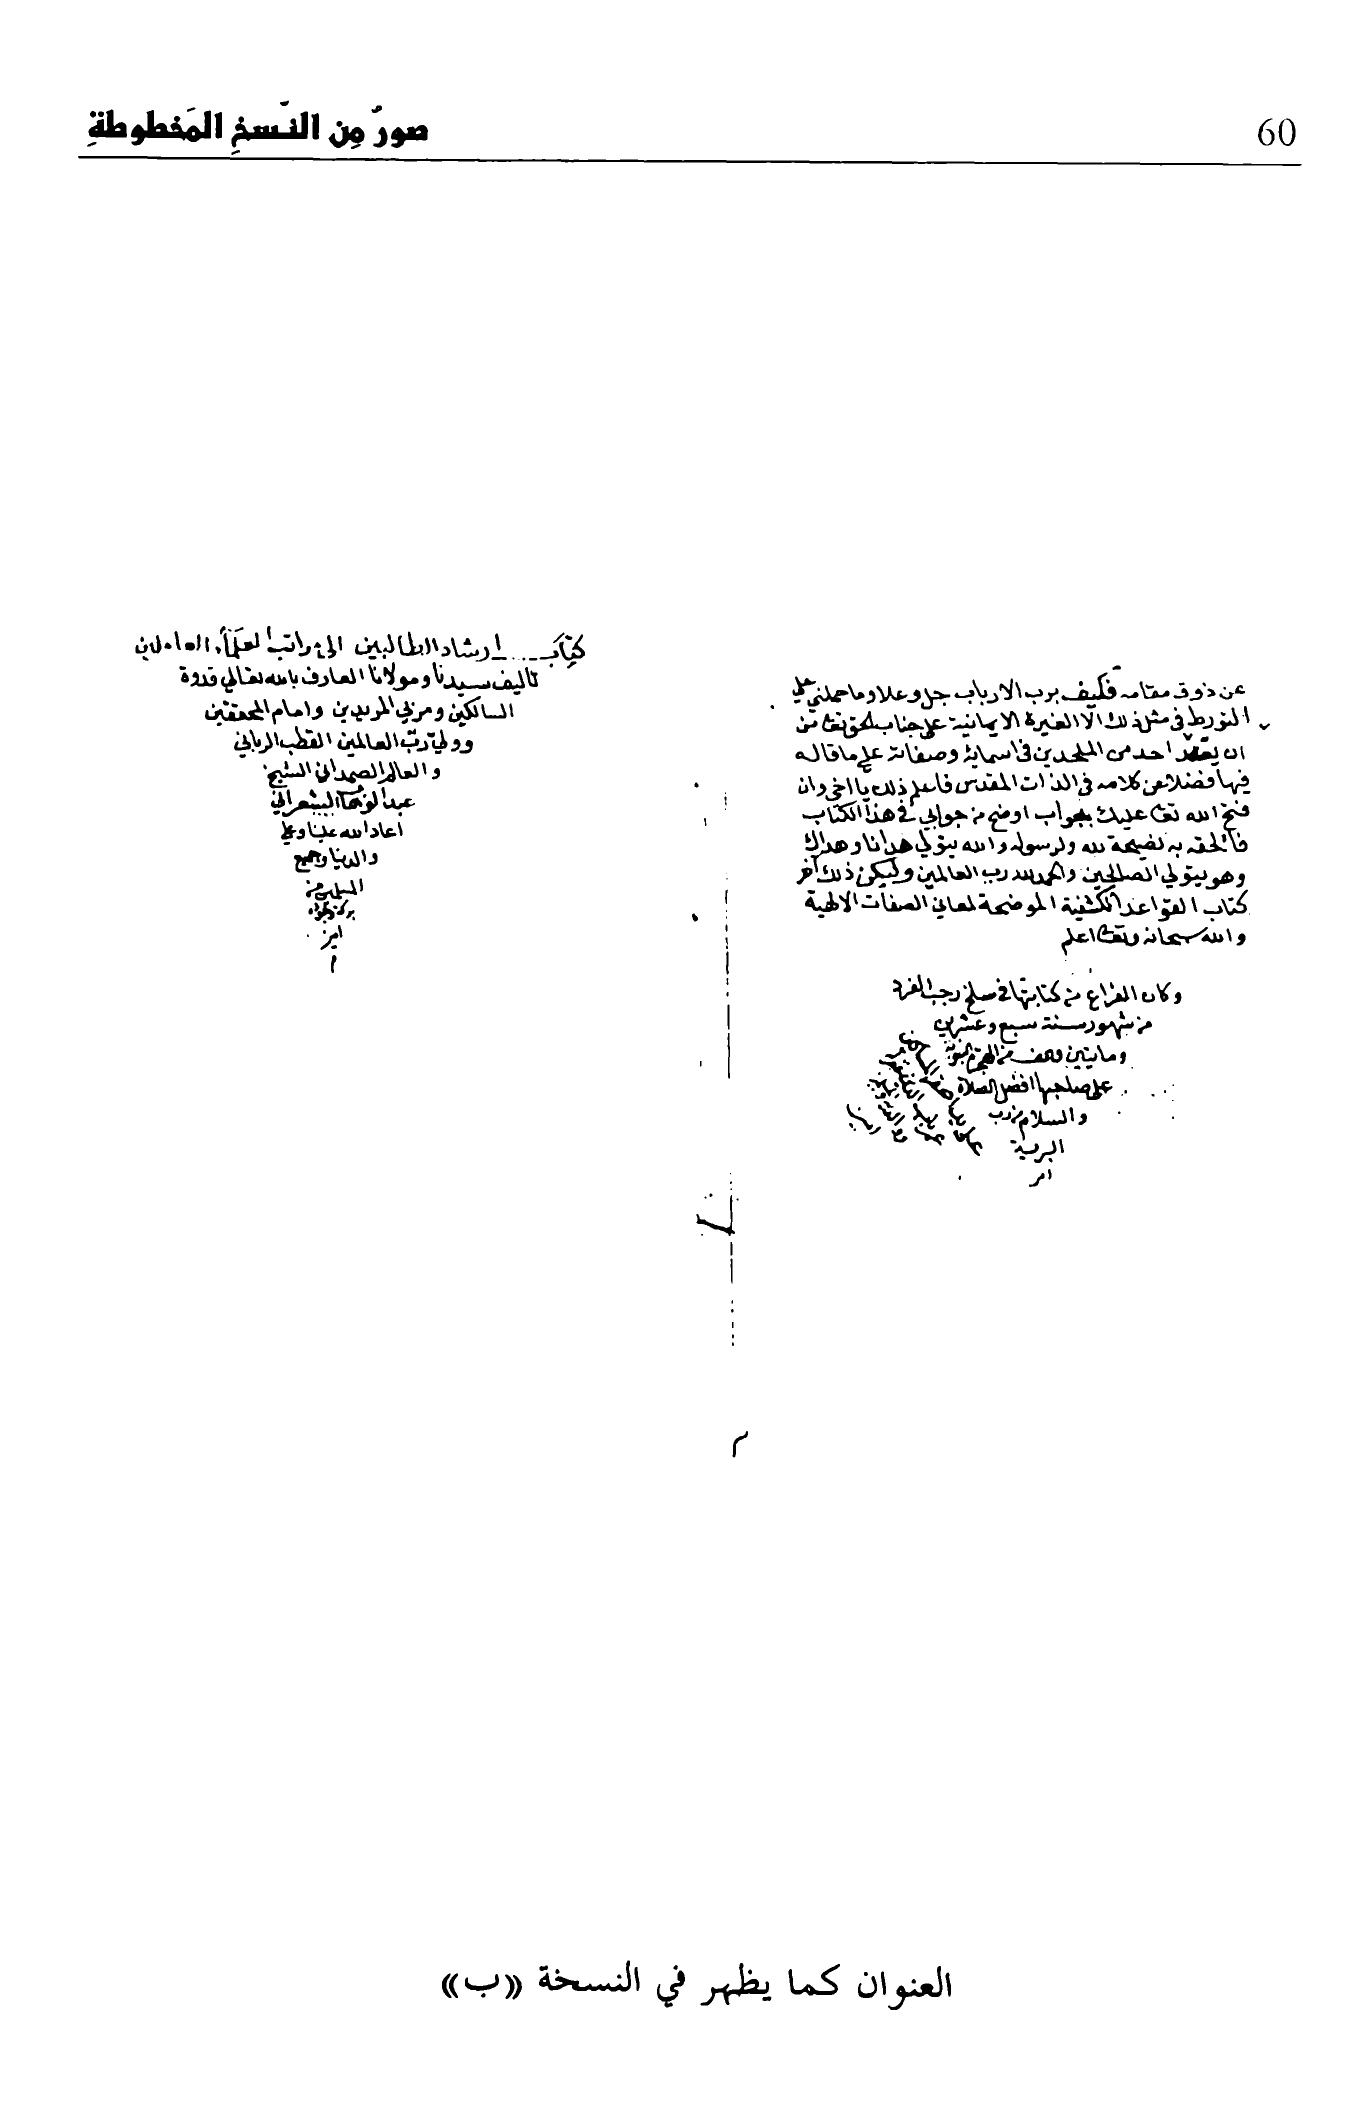 60
صورٌ مِن النّسخِ المَخطوطةِ
عن ذوق مقامه فكيف برب الارباب جل وعلا وما حملني على
التورط في مثل ذلك الا الغيرة الايمانية على جناب الحق تعا من
ان يعتقد احد من الملحدين في اسمائه وصفاته على ما قاله
فيها فضلا عن كلامه في الذات المقدس فاعلم ذلك يا اخي وان
فتح الله تعا عليك بجواب اوضح من جوابي في هذا الكتاب
فالحقه به نصيحة لله ولرسوله والله يتولي هدانا وهداك
وهو يتولي الصالحين والحمد لله رب العالمين وليكن ذلك آخر
كتاب القواعد الكشفية الموضحة لمعاني الصفات الالهية
والله سبحانه وتعا اعلم
وكان الفراغ من كتابتها في سلخ رجب الفرد
من شهور سنة سبع وعشرين
ومايتين والف من الهجرة النبوية
على صاحبها افضل الصلاة
والسلام من رب
البرية
امر
كتاب ارشاد الطالبين الى مراتب العلماء العاملين
تاليف سيدنا ومولانا العارف بالله تعالي قدوة
السالكين ومربي المريدين وامام المحققين
وولي رب العالمين القطب الرباني
والعالم الصمداني الشيخ
عبد الوهاب الشعراني
اعاد الله علينا وعلى
والدينا وجميع
المسلمين من
بركاته
امين
م
العنوان كما يظهر في النسخة «ب»